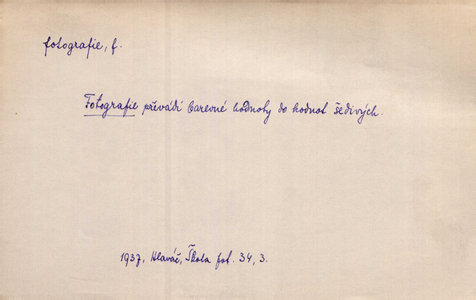 fotografie, f.
Fotografie převádí barevné hodnoty do hodnot šedivých.
1937, Hlaváč, Škola fot. 34, 3.